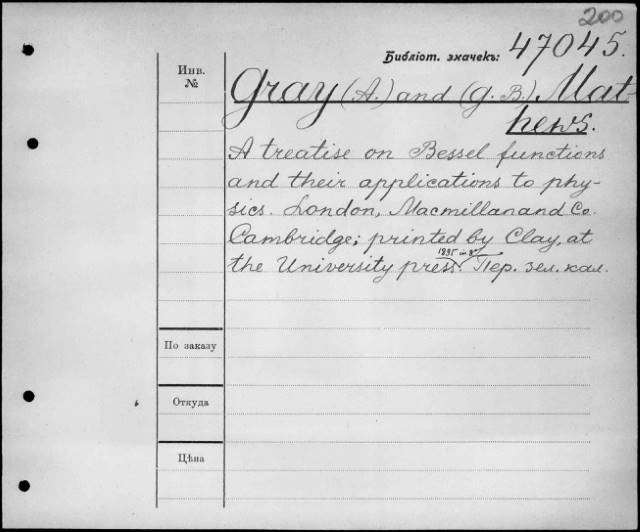 200
Библіот. значекъ: 47045.
Инв.
№
Gray (A.) and (G. B.) Mat-
hews.
A treatise on Bessel functions
and their applications to phy-
sics. London, Macmillan and Co.
Cambridge; printed by Clay, at
1895 in 8°
the University press. Пер. зел. кал.
По заказу
Откуда
Цѣна